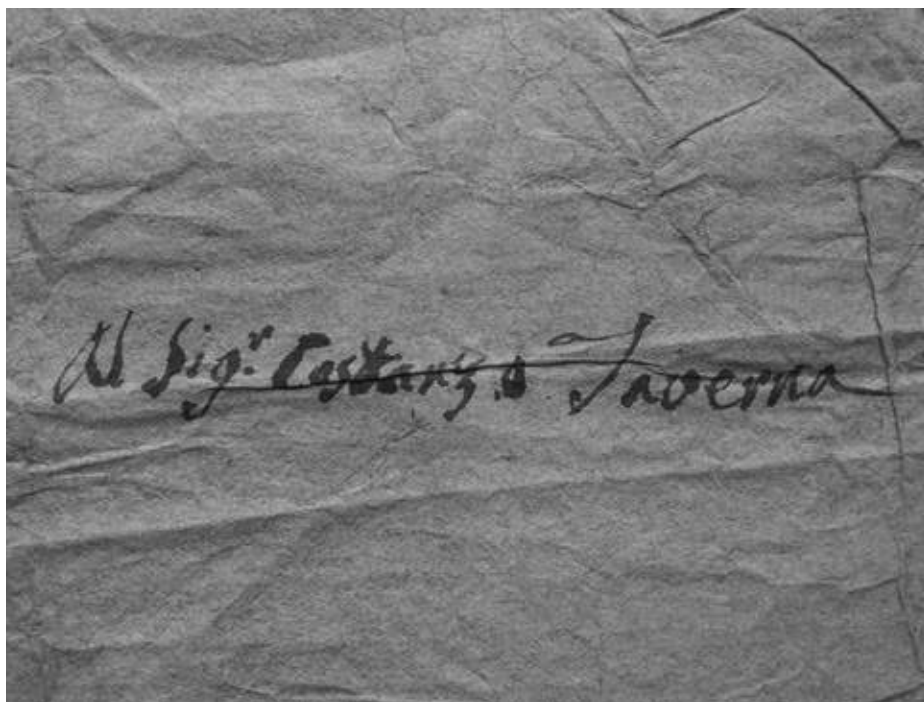 Al Sig.r Costanzo Taverna